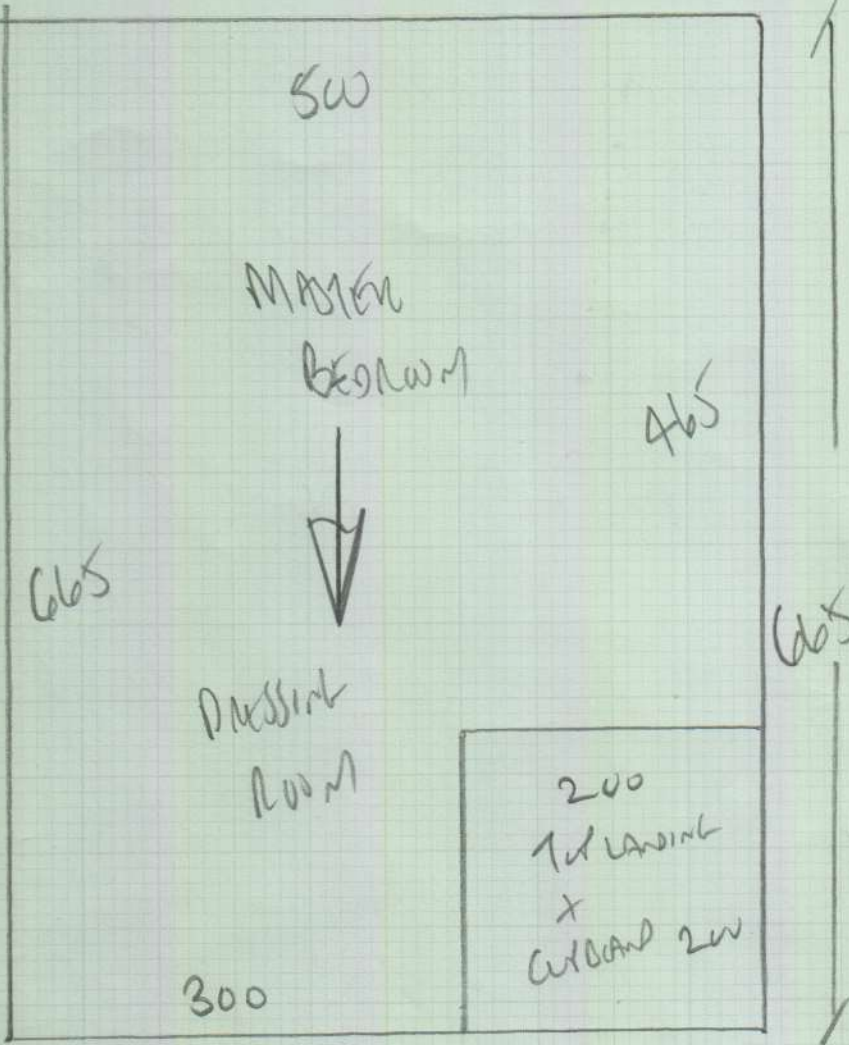 500
MASTER
BEDROOM
465
665
665
DRESSING
ROOM
200
TOP LANDING
X
CUPBOARD 200
300